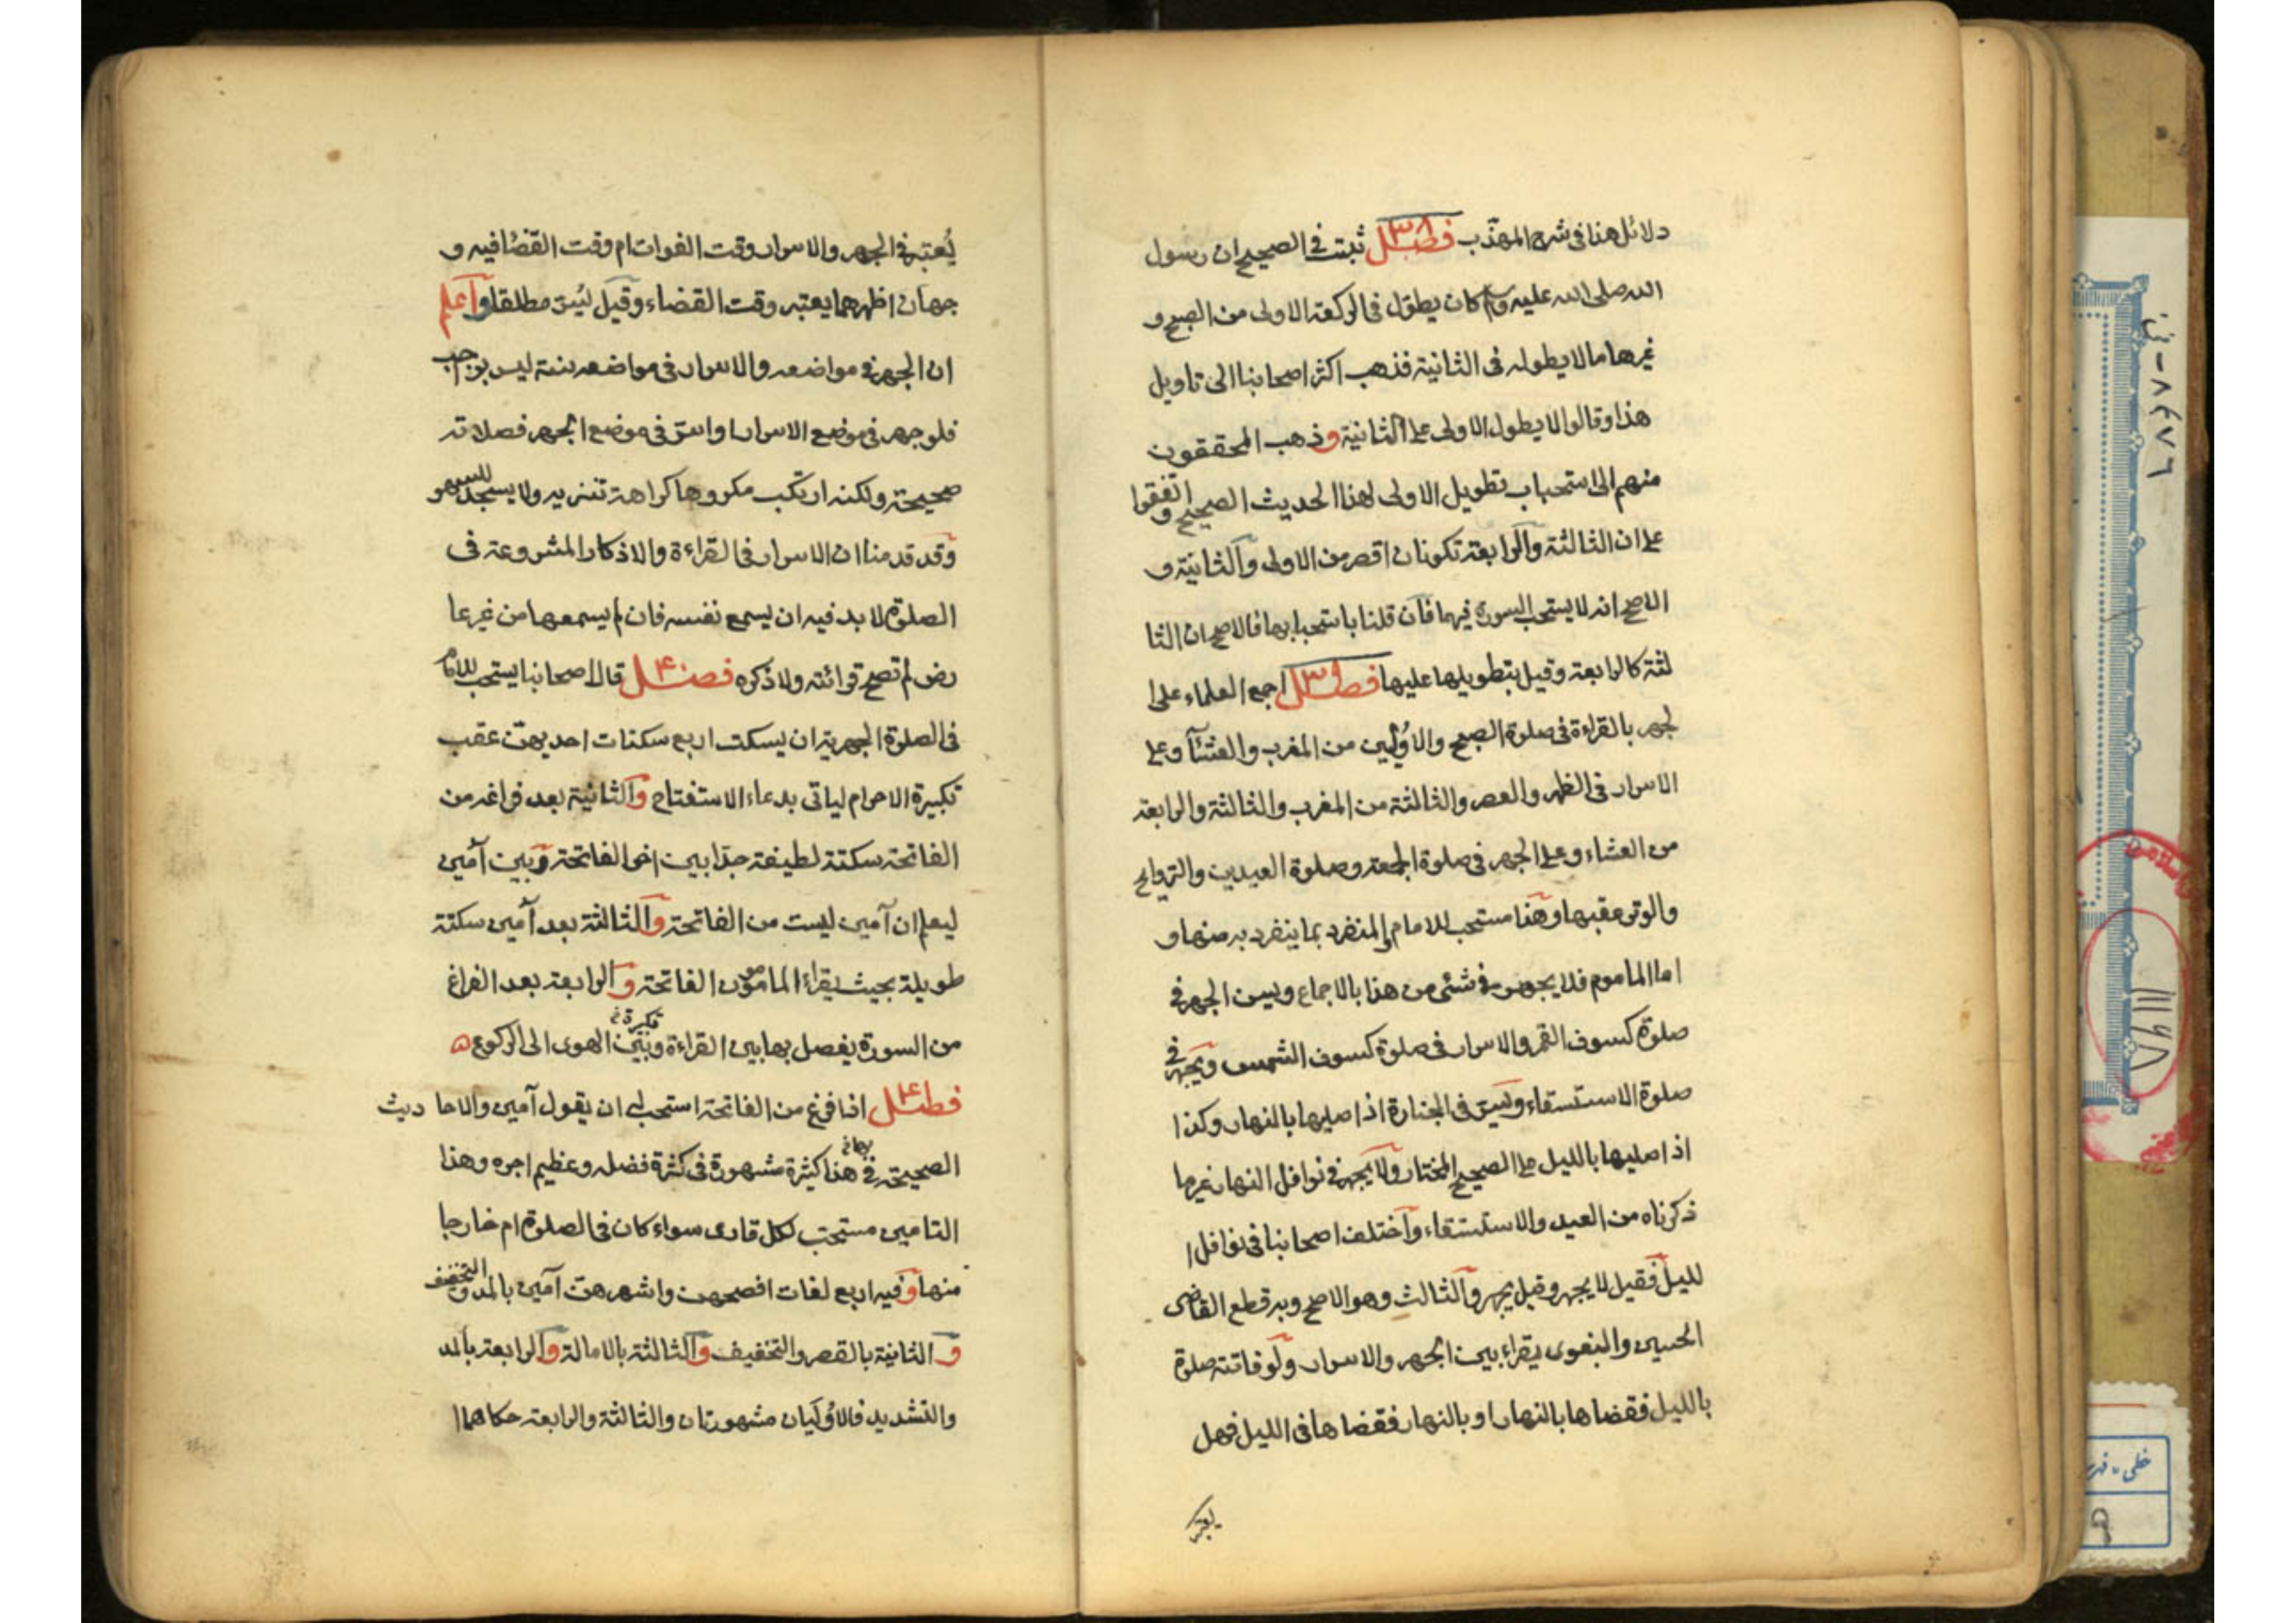 دلائل هذا فى شرح المهذّب فصل ٣٨ ثبت في الصحيح ان رسول
الله صلى الله عليه وسلم كان يطوّل فى الركعة الاولى من الصبح و
غيرها مالا يطوله فى الثانية فذهب اكثر اصحابنا الى تاويل
هذا وقالوا لا يطول الاولى على الثانية وذهب المحققون
منهم الى استحباب تطويل الاولى لهذا الحديث الصحيح واتفقوا
على ان الثالثة والرابعة تكونان اقصر من الاولى والثانية و
الاصح انه لا يستحب السورة فيهما فان قلنا باستحبابها فالاصح ان الثا
لثة كالرابعة وقيل بتطويلها عليها فصل ٣٩ اجمع العلماء على ا
لجهر بالقراءة فى صلوة الصبح والاوليين من المغرب والعشاء وعلى
الاسرار فى الظهر والعصر والثالثة من المغرب والثالثة والرابعة
من العشاء وعلى الجهر فى صلوة الجمعة وصلوة العيدين والتراويح
والوتر عقبها وهذا مستحب للامام والمنفرد بما ينفرد به منها و
اما الماموم فلا يجهر في شئ من هذا بالاجماع ويسن الجهر في
صلوة كسوف القمر والاسرار فى صلوة كسوف الشمس ويجهر في
صلوة الاستسقاء ويسر فى الجنازة اذا صليها بالنهار وكذا
اذا صليها بالليل على الصحيح المختار ولا يجهر في نوافل النهار غير ما
ذكرناه من العيد والاستسقاء واختلف اصحابنا فى نوافل ا
لليل فقيل لا يجهر وقيل يجهر والثالث وهو الاصح وبه قطع القاضى
الحسين والبغوى يقراء بين الجهر والاسرار ولو فاتته صلوة
بالليل فقضاها بالنهار او بالنهار فقضاها فى الليل فهل
يعتبر
يُعتبر في الجهر والاسرار وقت الفوات ام وقت القضا فيه و
جهان اظهرهما يعتبر وقت القضاء وقيل يُسر مطلقا واعلم
ان الجهر في مواضعه والاسرار فى مواضعه سنة ليس بواجب
فلو جهر فى موضع الاسرار او اسر فى موضع الجهر فصلاته
صحيحة ولكنه ارتكب مكروها كراهة تنزيه ولا يسجد للسهو
وقد قدمنا ان الاسرار فى القراءة والاذكار المشروعة فى
الصلوة لا بد فيه ان يسمع نفسه فان لم يسمعها من غير عا
رض لم تصح قرائته ولا ذكره فصل ٤٠ قال اصحابنا يستحب للامام
فى الصلوة الجهرية ان يسكت اربع سكتات احديهن عقب
تكبيرة الاحرام لياتى بدعاء الاستفتاح والثانية بعد فراغه من
الفاتحة سكتة لطيفة جدّا بين اخر الفاتحة وبين آمين
ليعلم ان آمين ليست من الفاتحة والثالثة بعد آمين سكتة
طويلة بحيث يقراء المامومون الفاتحة والرابعة بعد الفراغ
من السورة يفصل بها بين القراءة وبين تكبيرة الهوى الى الركوع ه
فصل ٤١ اذا فرغ من الفاتحة استحب له ان يقول آمين والاحا ديث
الصحيحة في هذا كثيرة مشهورة فى كثرة فضله وعظيم اجره وهذا
التامين مستحب لكل قارى سواء كان فى الصلوة ام خارجا
منها وفيه اربع لغات افصحهن واشهرهن آمين بالمد والتخفيف
والثانية بالقصر والتخفيف والثالثة بالامالة والرابعة بالمد
والتشديد فالاوليان مشهورتان والثالثة والرابعة حكاهما ا